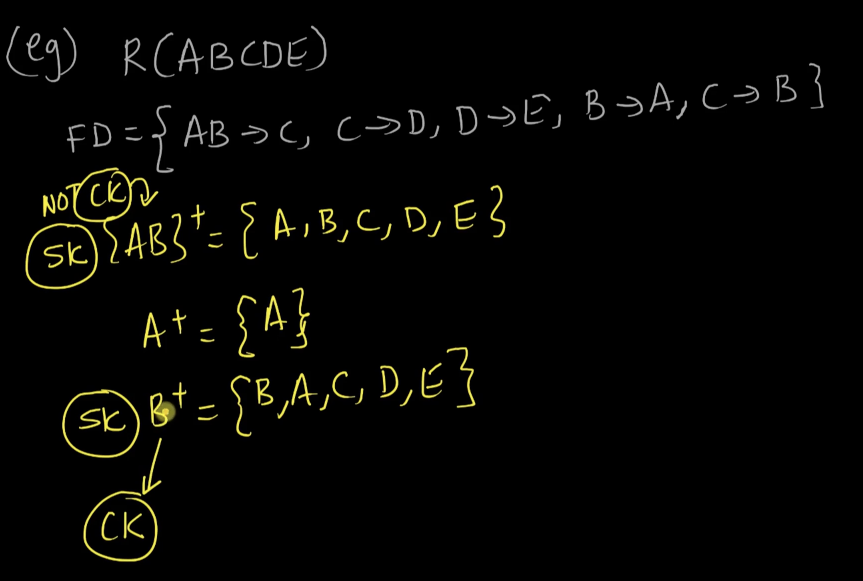 (eg) R(ABCDE)
FD = { AB → C, C → D, D → E, B → A, C → B }
NOT CK
SK {AB}⁺ = { A, B, C, D, E }
A⁺ = {A}
SK B⁺ = {B, A, C, D, E}
CK